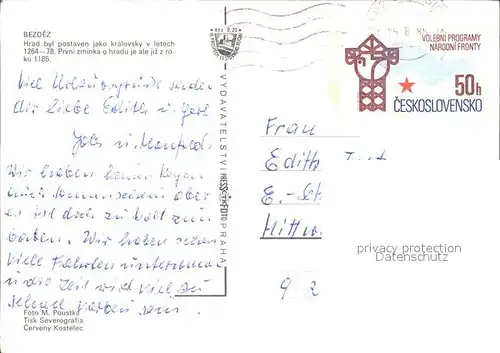 BEZDĚZ
Hrad byl postaven jako královský v letech
1264—78. První zmínka o hradu je ale již z ro-
ku 1185.
Viel Urlaubsgrüsse senden
dir liebe Edith u.
u. Manfred.
Wir haben keinen Regen
auch Sonnenschein aber
es ist doch zu kalt zum
baden. Wir haben schon
viele Fahrten unternommen
u die Zeit wird viel zu
schnell vorbei sein.
Foto M. Poustka
Tisk Severografia
Červený Kostelec
Kčs 0,20
VYDAVATELSTVÍ PRESSFOTO PRAHA
VOLEBNÍ PROGRAMY
NÁRODNÍ FRONTY
50h
ČESKOSLOVENSKO
Frau
Edith
E.-Sch
9 2
privacy protection
Datenschutz